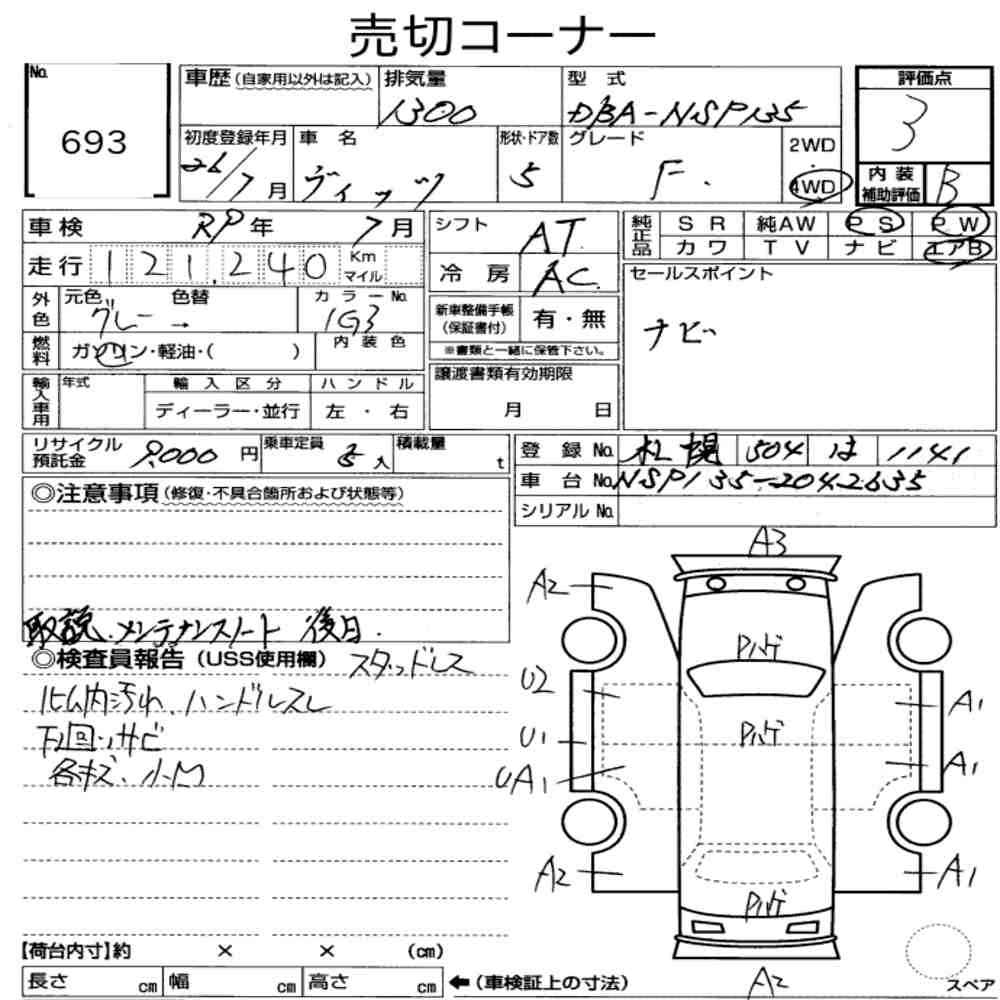 売切コーナー
No.
693
車歴(自家用以外は記入)
排気量
1300
型式
DBA-NSP135
評価点
3
初度登録年月
26/7月
車名
ヴィッツ
形状・ドア数
5
グレード
F.
2WD
4WD
内装
補助評価
B
車検 RP年 7月
シフト AT
純正品
SR 純AW PS PW
カワ TV ナビ エアB
走行 121,240 Km
マイル
冷房 AC
外色
元色 グレー→
色替
カラーNo.
1G3
セールスポイント
ナビ
新車整備手帳
(保証書付)
有・無
※書類と一緒に保管下さい。
燃料
ガソリン・軽油・( )
内装色
輸入車用
年式
輸入区分
ディーラー・並行
ハンドル
左・右
譲渡書類有効期限
月 日
リサイクル
預託金
9,000円
乗車定員
5人
積載量
t
登録No. 札幌 504 は 1141
車台No. NSP135-2042635
シリアルNo.
◎注意事項(修復・不具合箇所および状態等)
取説.メンテナンスノート 後日.
◎検査員報告(USS使用欄) スタッドレス
内汚れ、ハンドルスレ
下回りサビ
各キズ、小凹
A3
A2
U2
U1
UA1
A2
A1
A1
A1
A2
【荷台内寸】約 × × (cm)
長さ cm 幅 cm 高さ cm ←(車検証上の寸法)
スペア